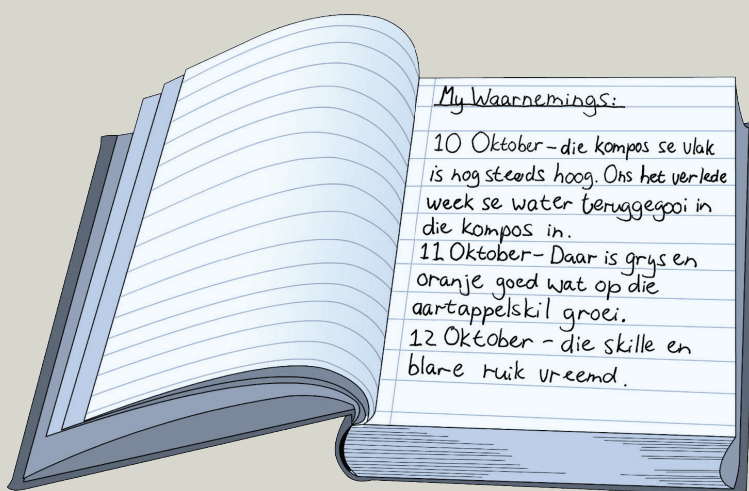 My Waarnemings:
10 Oktober – die kompos se vlak
is nog steeds hoog. Ons het verlede
week se water teruggegooi in
die kompos in.
11 Oktober – Daar is grys en
oranje goed wat op die
aartappelskil groei.
12 Oktober – die skille en
blare ruik vreemd.